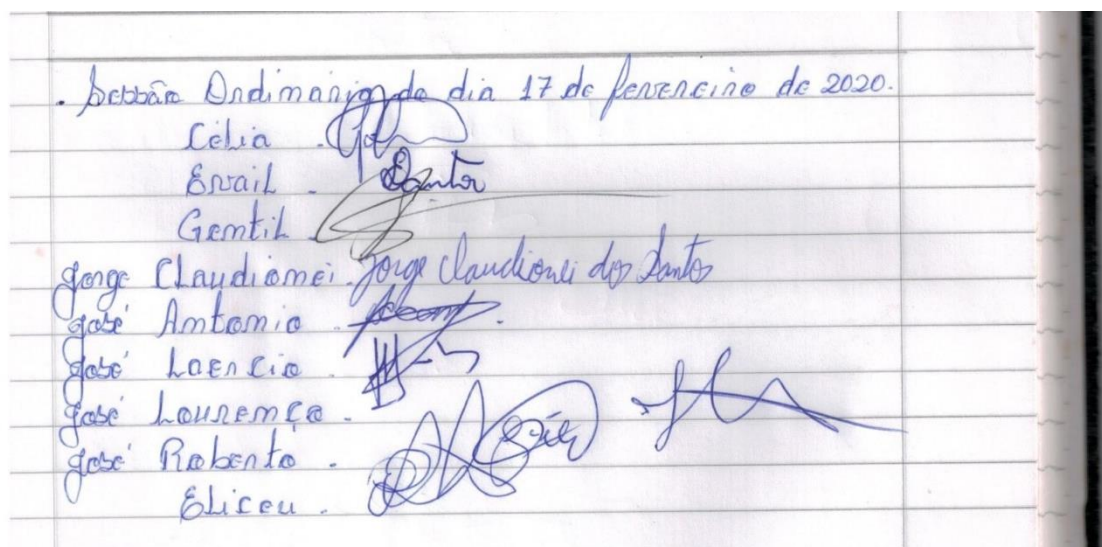 . Sessão Ordinária do dia 17 de fevereiro de 2020.
Célia .
Ervail . Santos
Gentil
Jorge Claudionei . Jorge Claudionei dos Santos
José Antonio .
José Laercio .
José Lourenço .
José Roberto .
Eliceu .